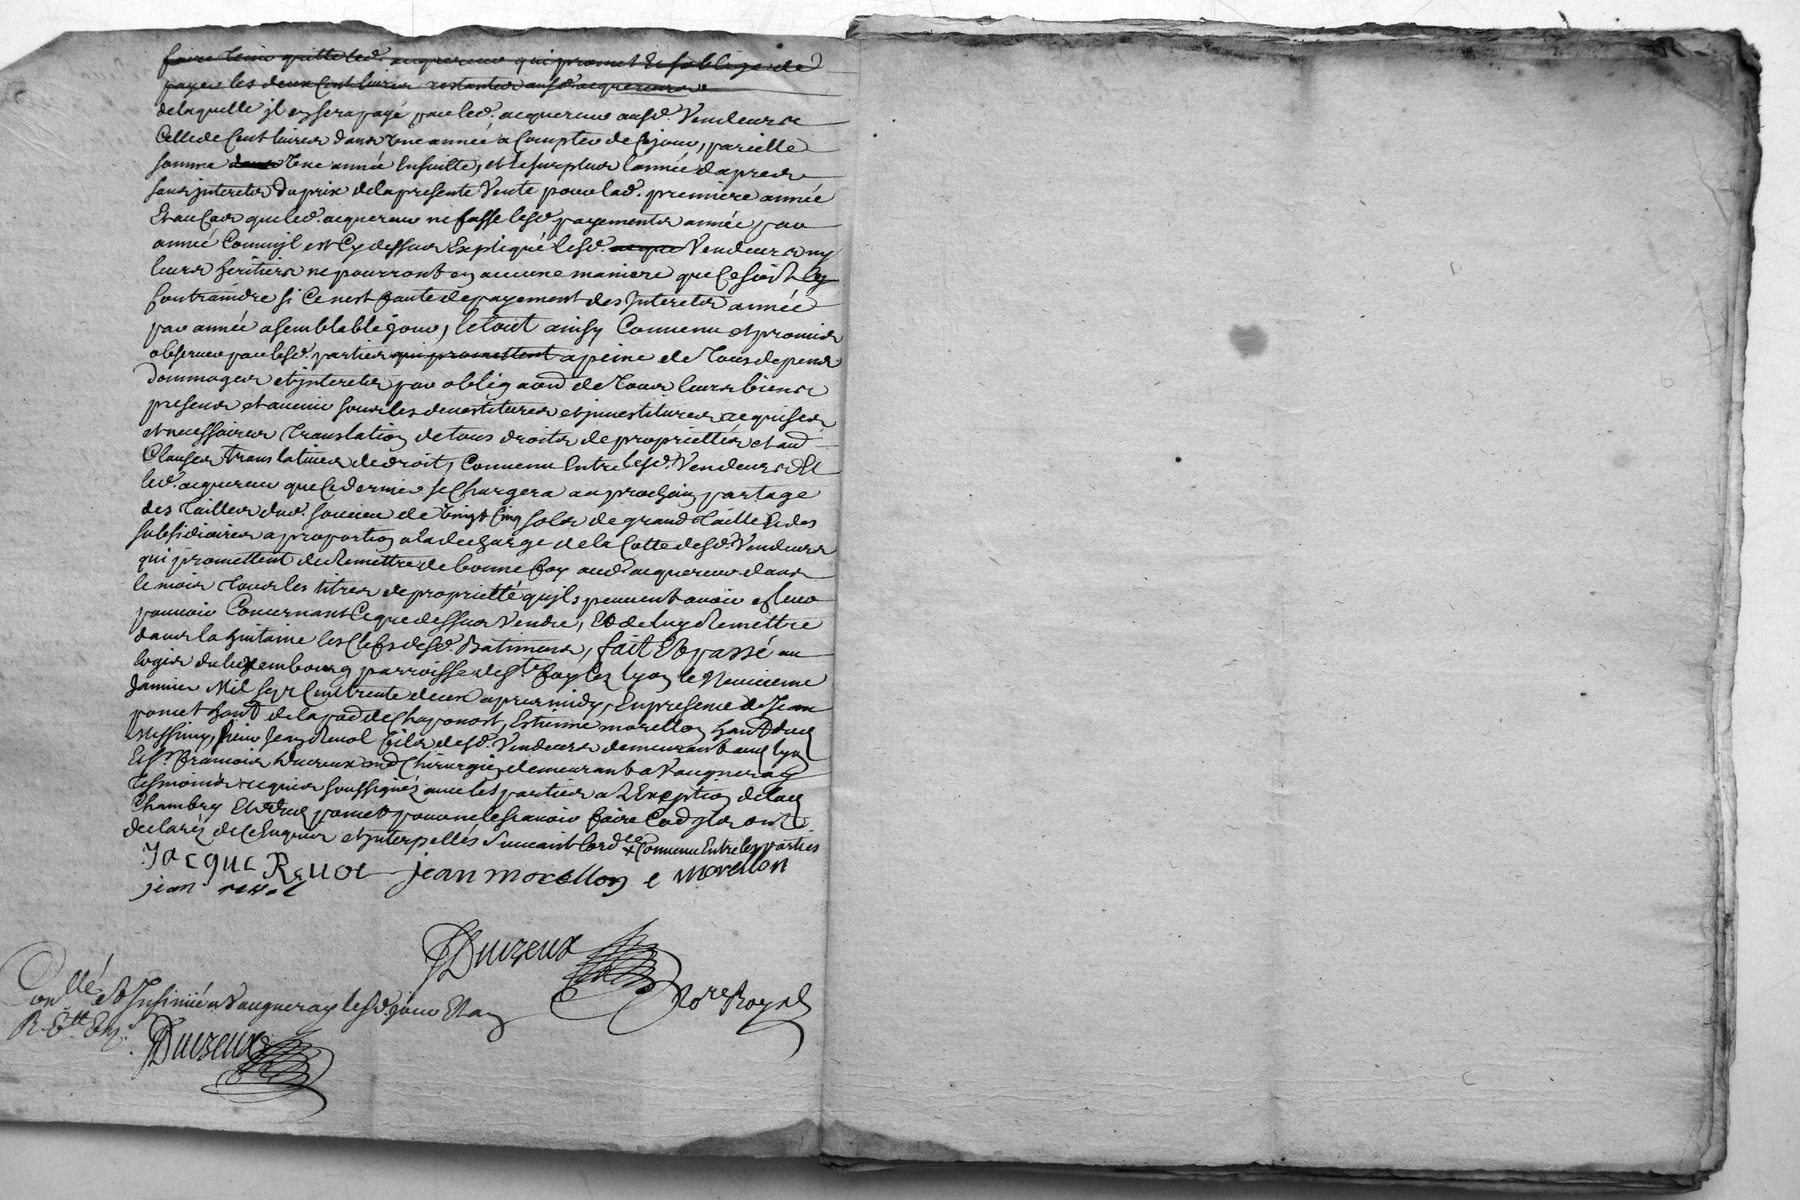 faire tenir quitte led. acquereur qui promet Et soblige de
payer les deux cent livres restantes ausd. acquereurs
de laquelle jl en sera payé par led. acquereur ausd. Vendeurs
Celle de Cent livres dans Une année a Compter de Cejour, pareille
somme dans Une année Ensuitte, et le surplus lannée dapres
sans jnterets du prix de la presente Vente pour lad. premiere année
Et au Cas que led. acquereur ne fasse lesd. payements année par
année Comm'jl est Cy dessus Expliqué lesd. acque Vendeurs ny
leurs heritiers ne pourront en aucune maniere que Ce soit ly
Contraindre si Ce nest faute de payement des Jnterets année
par année a semblable jour, le tout ainsy Convenu et promis
observer par lesd. parties qui promettent a peine de Tous depens
dommages et jnterets par obligaond de Tous leurs biens
presens et avenir sous les devestitures et jnvestitures requises
et necessaires Translation de tous droits de proprietté et aud
Clauses translatives de droit, Convenu Entre lesd. Vendeurs Et
led. acquereur que Ce dernier se Chargera au prochain partage
des Tailles dud. soucieu de Vingt Cinq sols de grand Taille Et des
subsidiaires a proportion a la decharge de la Cotte desd. Vendeurs
qui promettent de Remettre de bonne foy aud. acquereur dans
le mois Tous les titres de proprietté qujls peuvent avoir en leur
pouvoir Concernant Ce que dessus Vendu, Et de luy Remettre
dans la huitaine les Clefs desd. Batimens, fait Et passé au
logis du luxembourg parroisse de Ste. foy les Lyon le Neuvieme
Janvier Mil sept Cent trente deux apres midy, En presence de Jean
pomet habt de la pad de Chaponost, Estienne morellon habt dud
Messimy, sieur Jean Revol fils desd. Vendeurs demeurant aud Lyon
Et Sr. francois Ducreux md. Chirurgien demeurant a Vaugneray
Tesmoins requis soussignez avec les parties a L'Exception de lad
Chambry Et dud pomet pour ne le scavoir faire Co'd jls ont
declaréz de Ce Enquis et jnterpellés suivant lord. ce + Convenu Entre les parties
Jacque Revol jean morellon e morellon
jean revol
Ducreux
No.re Royal
Con.llé et Insinué a Vaugneray lesd. jour Et an
R. 6tt 6s
Ducreux